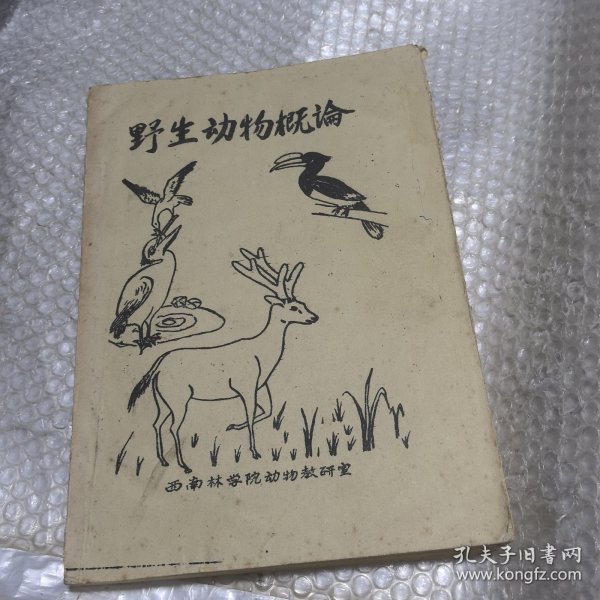 野生动物概論
西南林学院动物教研室
孔夫子旧书网
www.kongfz.com